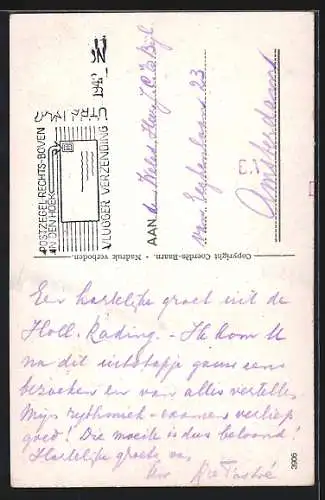 POSTZEGEL RECHTS-BOVEN
IN DEN HOEK
VLUGGER VERZENDING
AAN
23
Amsterdam
Copyright Coerdès-Baarn. – Nadruk verboden.
Een hartelijke groet uit de
Holl. Rading. – Ik kom U
na dit uitstapje gauw eens
bezoeken en van alles vertellen.
Mijn rythmiek-examen verliep
goed! Die moeite is dus beloond!
Hartelijke groeten van
3906